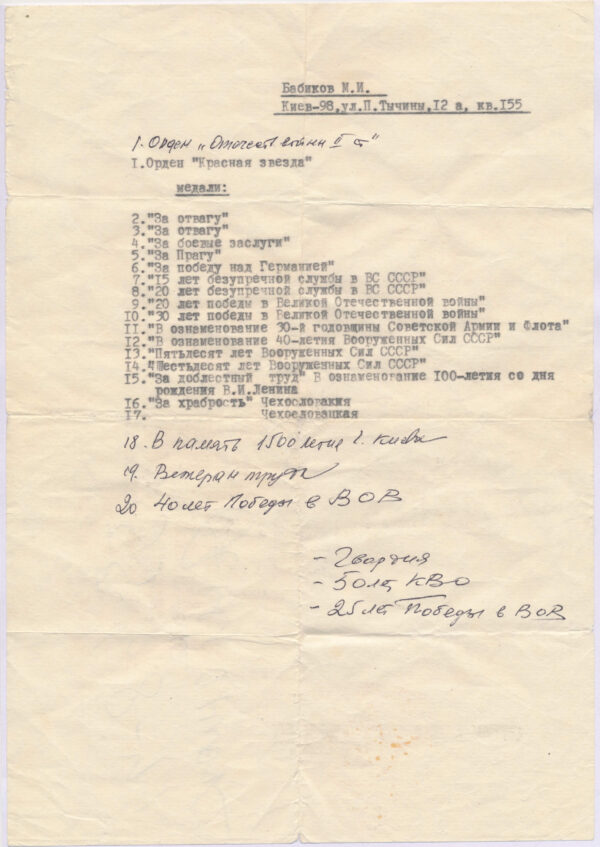 Бабиков М.И.
Киев-98,ул.П.Тычины,12 а, кв.155
1. Орден „Отечеств войны II ст"
I.Орден "Красная звезда"
медали:
2."За отвагу"
3."За отвагу"
4."За боевые заслуги"
5."За Прагу"
6."За победу над Германией"
7."15 лет безупречной службы в ВС СССР"
8."20 лет безупречной службы в ВС СССР"
9."20 лет победы в Великой Отечественной войны"
10."30 лет победы в Великой Отечественной войны"
11."В ознаменование 30-й годовщины Советской Армии и Флота"
12."В ознаменование 40-летия Вооруженных Сил СССР"
13."Пятьдесят лет Вооруженных Сил СССР"
14."Шестьдесят лет Вооруженных Сил СССР"
15."За доблестный труд" В ознаменование 100-летия со дня
рождения В.И.Ленина
16."За храбрость" Чехословакия
17. Чехословацкая
18. В память 1500летие г. Киева
19. Ветеран труда
20. 40 лет Победы в ВОВ
- Гвардия
- 50 лет КВО
- 25 лет Победы в ВОВ